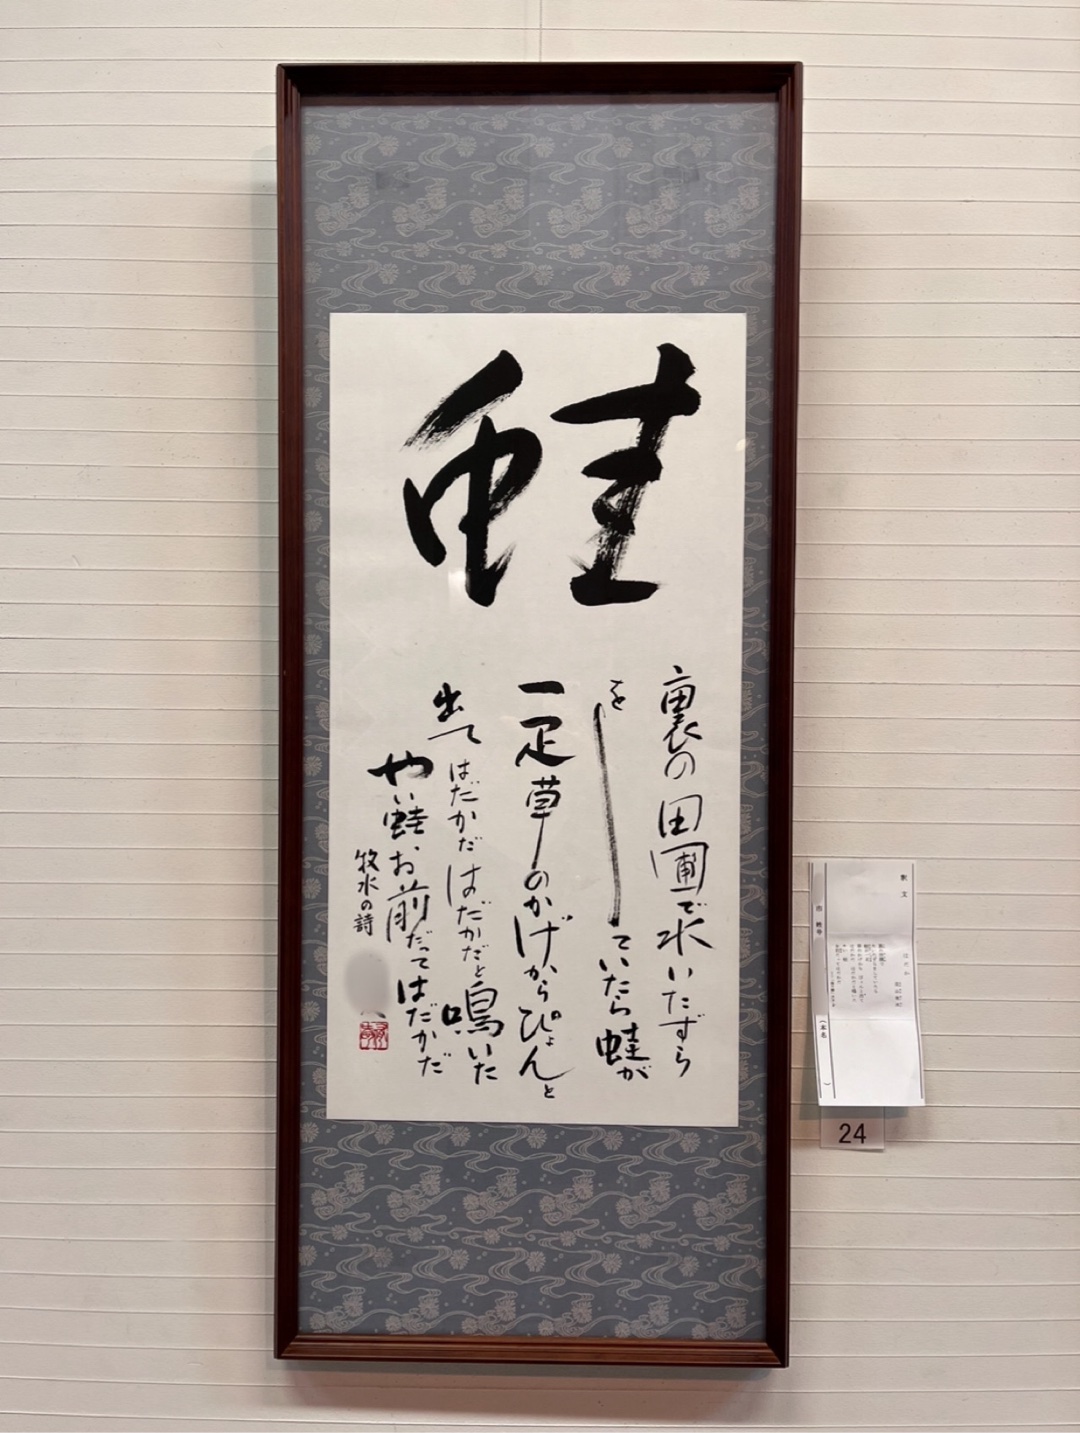 蛙
裏の田圃で水いたずら
をしていたら蛙が
一疋草のかげからぴょんと
出てはだかだはだかだと鳴いた
やい蛙、お前だってはだかだ
牧水の詩
釈文
24